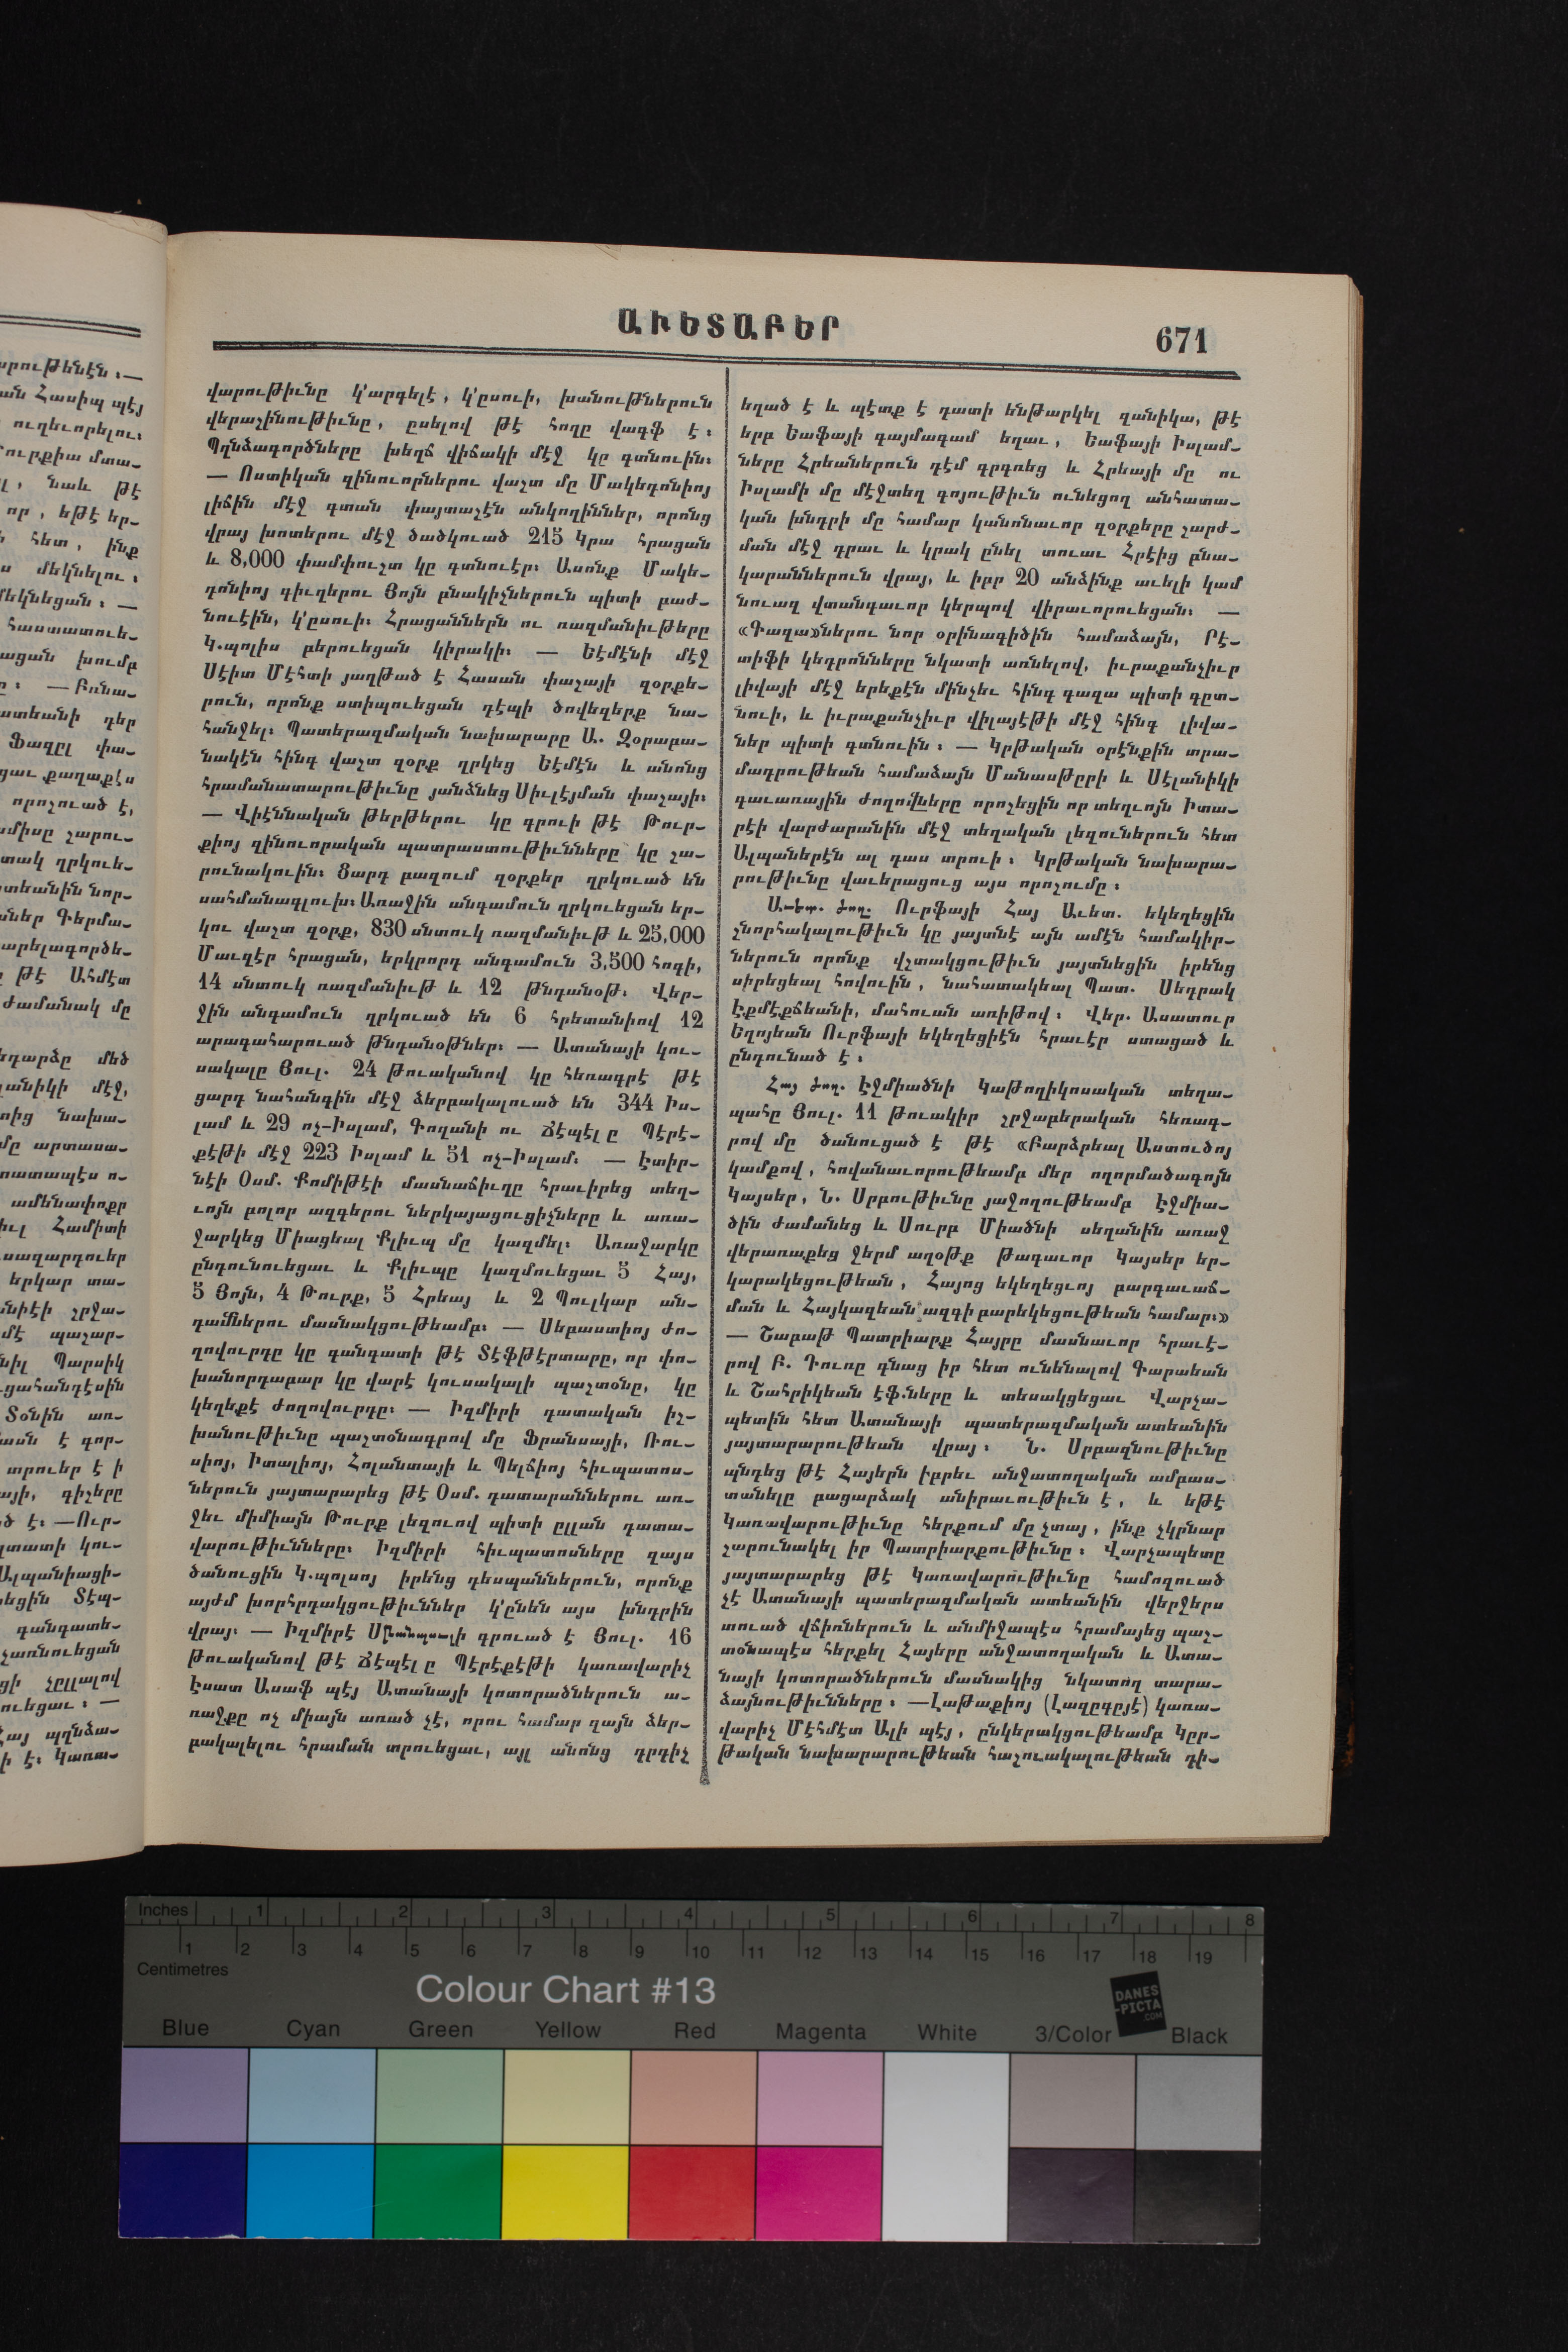 ԱՒԵՏԱԲԵՐ
671
վարութիւնը կ'արգելէ, կ'ըսուի, խանութներուն
վերաշինութիւնը, ըսելով թէ հողը վագֆ է։
Պղնձագործները խեղճ վիճակի մէջ կը գտնուին։
— Ոստիկան զինուորներու վաշտ մը Մակեդոնիոյ
լիճին մէջ գտան փայտաշէն անկողիններ, որոնց
վրայ խոտերու մէջ ծածկուած 215 Կրա հրացան
և 8,000 փամփուշտ կը գտնուէր։ Ասոնք Մակե-
դոնիոյ գիւղերու Յոյն բնակիչներուն պիտի բաժ-
նուէին, կ'ըսուի։ Հրացաններն ու ռազմանիւթերը
Կ.պոլիս բերուեցան կիրակի։ — Եէմէնի մէջ
Սէիտ Մէհտի յաղթած է Հասան փաշայի զօրքե-
րուն, որոնք ստիպուեցան դէպի ծովեզերք նա-
հանջել։ Պատերազմական նախարարը Ա. Զօրաբա-
նակէն հինգ վաշտ զօրք ղրկեց Եէմէն և անոնց
հրամանատարութիւնը յանձնեց Սիւլէյման փաշայի։
— Վիէննական թերթերու կը գրուի թէ Թուր-
քիոյ զինուորական պատրաստութիւնները կը շա-
րունակուին։ Ցարդ բազում զօրքեր ղրկուած են
սահմանագլուխ։ Առաջին անգամուն ղրկուեցան եր-
կու վաշտ զօրք, 830 սնտուկ ռազմանիւթ և 25,000
Մաւզէր հրացան, երկրորդ անգամուն 3,500 հոգի,
14 սնտուկ ռազմանիւթ և 12 թնդանօթ։ Վեր-
ջին անգամուն ղրկուած են 6 հրետանիով 12
արագահարուած թնդանօթներ։ — Ատանայի կու-
սակալը Յուլ. 24 թուականով կը հեռագրէ թէ
ցարդ նահանգին մէջ ձերբակալուած են 344 Իս-
լամ և 29 ոչ-Իսլամ, Գոզանի ու Ճէպէլ ը Պէրէ-
քէթի մէջ 223 Իսլամ և 51 ոչ-Իսլամ։ — Էտիր-
նէի Օսմ. Քոմիթէի մասնաճիւղը հրաւիրեց տեղ-
ւոյն բոլոր ազգերու ներկայացուցիչները և առա-
ջարկեց Միացեալ Քլիւպ մը կազմել։ Առաջարկը
ընդունուեցաւ և Քլիւպը կազմուեցաւ 5 Հայ,
5 Յոյն, 4 Թուրք, 5 Հրեայ և 2 Պուլկար ան-
դամներու մասնակցութեամբ։ — Սեբաստիոյ ժո-
ղովուրդը կը գանգատի թէ Տէֆթէրտարը, որ փո-
խանորդաբար կը վարէ կուսակալի պաշտօնը, կը
կեղեքէ ժողովուրդը։ — Իզմիրի դատական իշ-
խանութիւնը պաշտօնագրով մը Ֆրանսայի, Ռու-
սիոյ, Իտալիոյ, Հոլանտայի և Պելճիոյ հիւպատոս-
ներուն յայտարարեց թէ Օսմ. դատարաններու առ-
ջեւ միմիայն Թուրք լեզուով պիտի ըլլան դատա-
վարութիւնները։ Իզմիրի հիւպատոսները զայս
ծանուցին Կ.պոլսոյ իրենց դեսպաններուն, որոնք
այժմ խորհրդակցութիւններ կ'ընեն այս խնդրին
վրայ։ — Իզմիրէ գրուած է Յուլ. 16
թուականով թէ Ճէպէլ ը Պէրէքէթի կառավարիչ
Էսատ Ասաֆ պէյ Ատանայի կոտորածներուն ա-
ռաջքը ոչ միայն առած չէ, որու համար զայն ձեր-
բակալելու հրաման տրուեցաւ, այլ անոնց դրդիչ
եղած է և պէտք է դատի ենթարկել զանիկա, թէ
երբ Եաֆայի գայմագամ եղաւ, Եաֆայի Իսլամ-
ները Հրեաներուն դէմ գրգռեց և Հրեայի մը ու
Իսլամի մը մէջտեղ գոյութիւն ունեցող անհատա-
կան խնդրի մը համար կանոնաւոր զօրքերը շարժ-
ման մէջ դրաւ և կրակ ընել տուաւ Հրէից բնա-
կարաններուն վրայ, և իբր 20 անձինք աւելի կամ
նուազ վտանգաւոր կերպով վիրաւորուեցան։ —
«Գազա»ներու նոր օրինագիծին համաձայն, Րէ-
տիֆի կեդրոնները նկատի առնելով, իւրաքանչիւր
լիվայի մէջ երեքէն մինչեւ հինգ գազա պիտի գըտ-
նուի, և իւրաքանչիւր վիլայէթի մէջ հինգ լիվա-
ներ պիտի գտնուին։ — Կրթական օրէնքին տրա-
մադրութեան համաձայն Մանասթըրի և Սէլանիկի
գաւառային ժողովները որոշեցին որ տեղւոյն Իտա-
րէի վարժարանին մէջ տեղական լեզուներուն հետ
Ալպաներէն ալ դաս տրուի։ Կրթական նախարա-
րութիւնը վաւերացուց այս որոշումը։
Աւետ. ժող. Ուրֆայի Հայ Աւետ. եկեղեցին
շնորհակալութիւն կը յայտնէ այն ամէն համակիր-
ներուն որոնք վշտակցութիւն յայտնեցին իրենց
սիրեցեալ հովուին, նահատակեալ Պատ. Սեդրակ
Էքմէքճեանի, մահուան առիթով։ Վեր. Ասատուր
Եղոյեան Ուրֆայի եկեղեցիէն հրաւէր ստացած և
ընդունած է։
Հայ ժող. Էջմիածնի Կաթողիկոսական տեղա-
պահը Յուլ. 11 թուակիր շրջաբերական հեռագ-
րով մը ծանուցած է թէ «Բարձրեալ Աստուծոյ
կամքով, հովանաւորութեամբ մեր ողորմածագոյն
Կայսեր, Ն. Սրբութիւնը յաջողութեամբ Էջմիա-
ծին ժամանեց և Սուրբ Միածնի սեղանին առաջ
վերառաքեց ջերմ աղօթք թագաւոր Կայսեր եր-
կարակեցութեան, Հայոց եկեղեցւոյ բարգաւաճ-
ման և Հայկազեան ազգի բարեկեցութեան համար։»
— Շաբաթ Պատրիարք Հայրը մասնաւոր հրաւէ-
րով Բ. Դուռը գնաց իր հետ ունենալով Գարաեան
և Շահրիկեան էֆ.ները և տեսակցեցաւ Վարչա-
պետին հետ Ատանայի պատերազմական ատեանին
յայտարարութեան վրայ։ Ն. Սրբազնութիւնը
պնդեց թէ Հայերն իբրեւ անջատողական ամբաս-
տանելը բացարձակ անիրաւութիւն է, և եթէ
Կառավարութիւնը հերքում մը չտայ, ինք չկրնար
շարունակել իր Պատրիարքութիւնը։ Վարչապետը
յայտարարեց թէ Կառավարութիւնը համոզուած
չէ Ատանայի պատերազմական ատեանին վերջերս
տուած վճիռներուն և անմիջապէս հրամայեց պաշ-
տօնապէս հերքել Հայերը անջատողական և Ատա-
նայի կոտորածներուն մասնակից նկատող տարա-
ձայնութիւնները։ — Լաթաքիոյ (Լազըգըյէ) կառա-
վարիչ Մէհմէտ Ալի պէյ, ընկերակցութեամբ Կըր-
թական նախարարութեան հաշուակալութեան դի-
Inches 1 2 3 4 5 6 7 8
1 2 3 4 5 6 7 8 9 10 11 12 13 14 15 16 17 18 19
Centimetres
Colour Chart #13
DANES
-PICTA
.COM
Blue Cyan Green Yellow Red Magenta White 3/Color Black